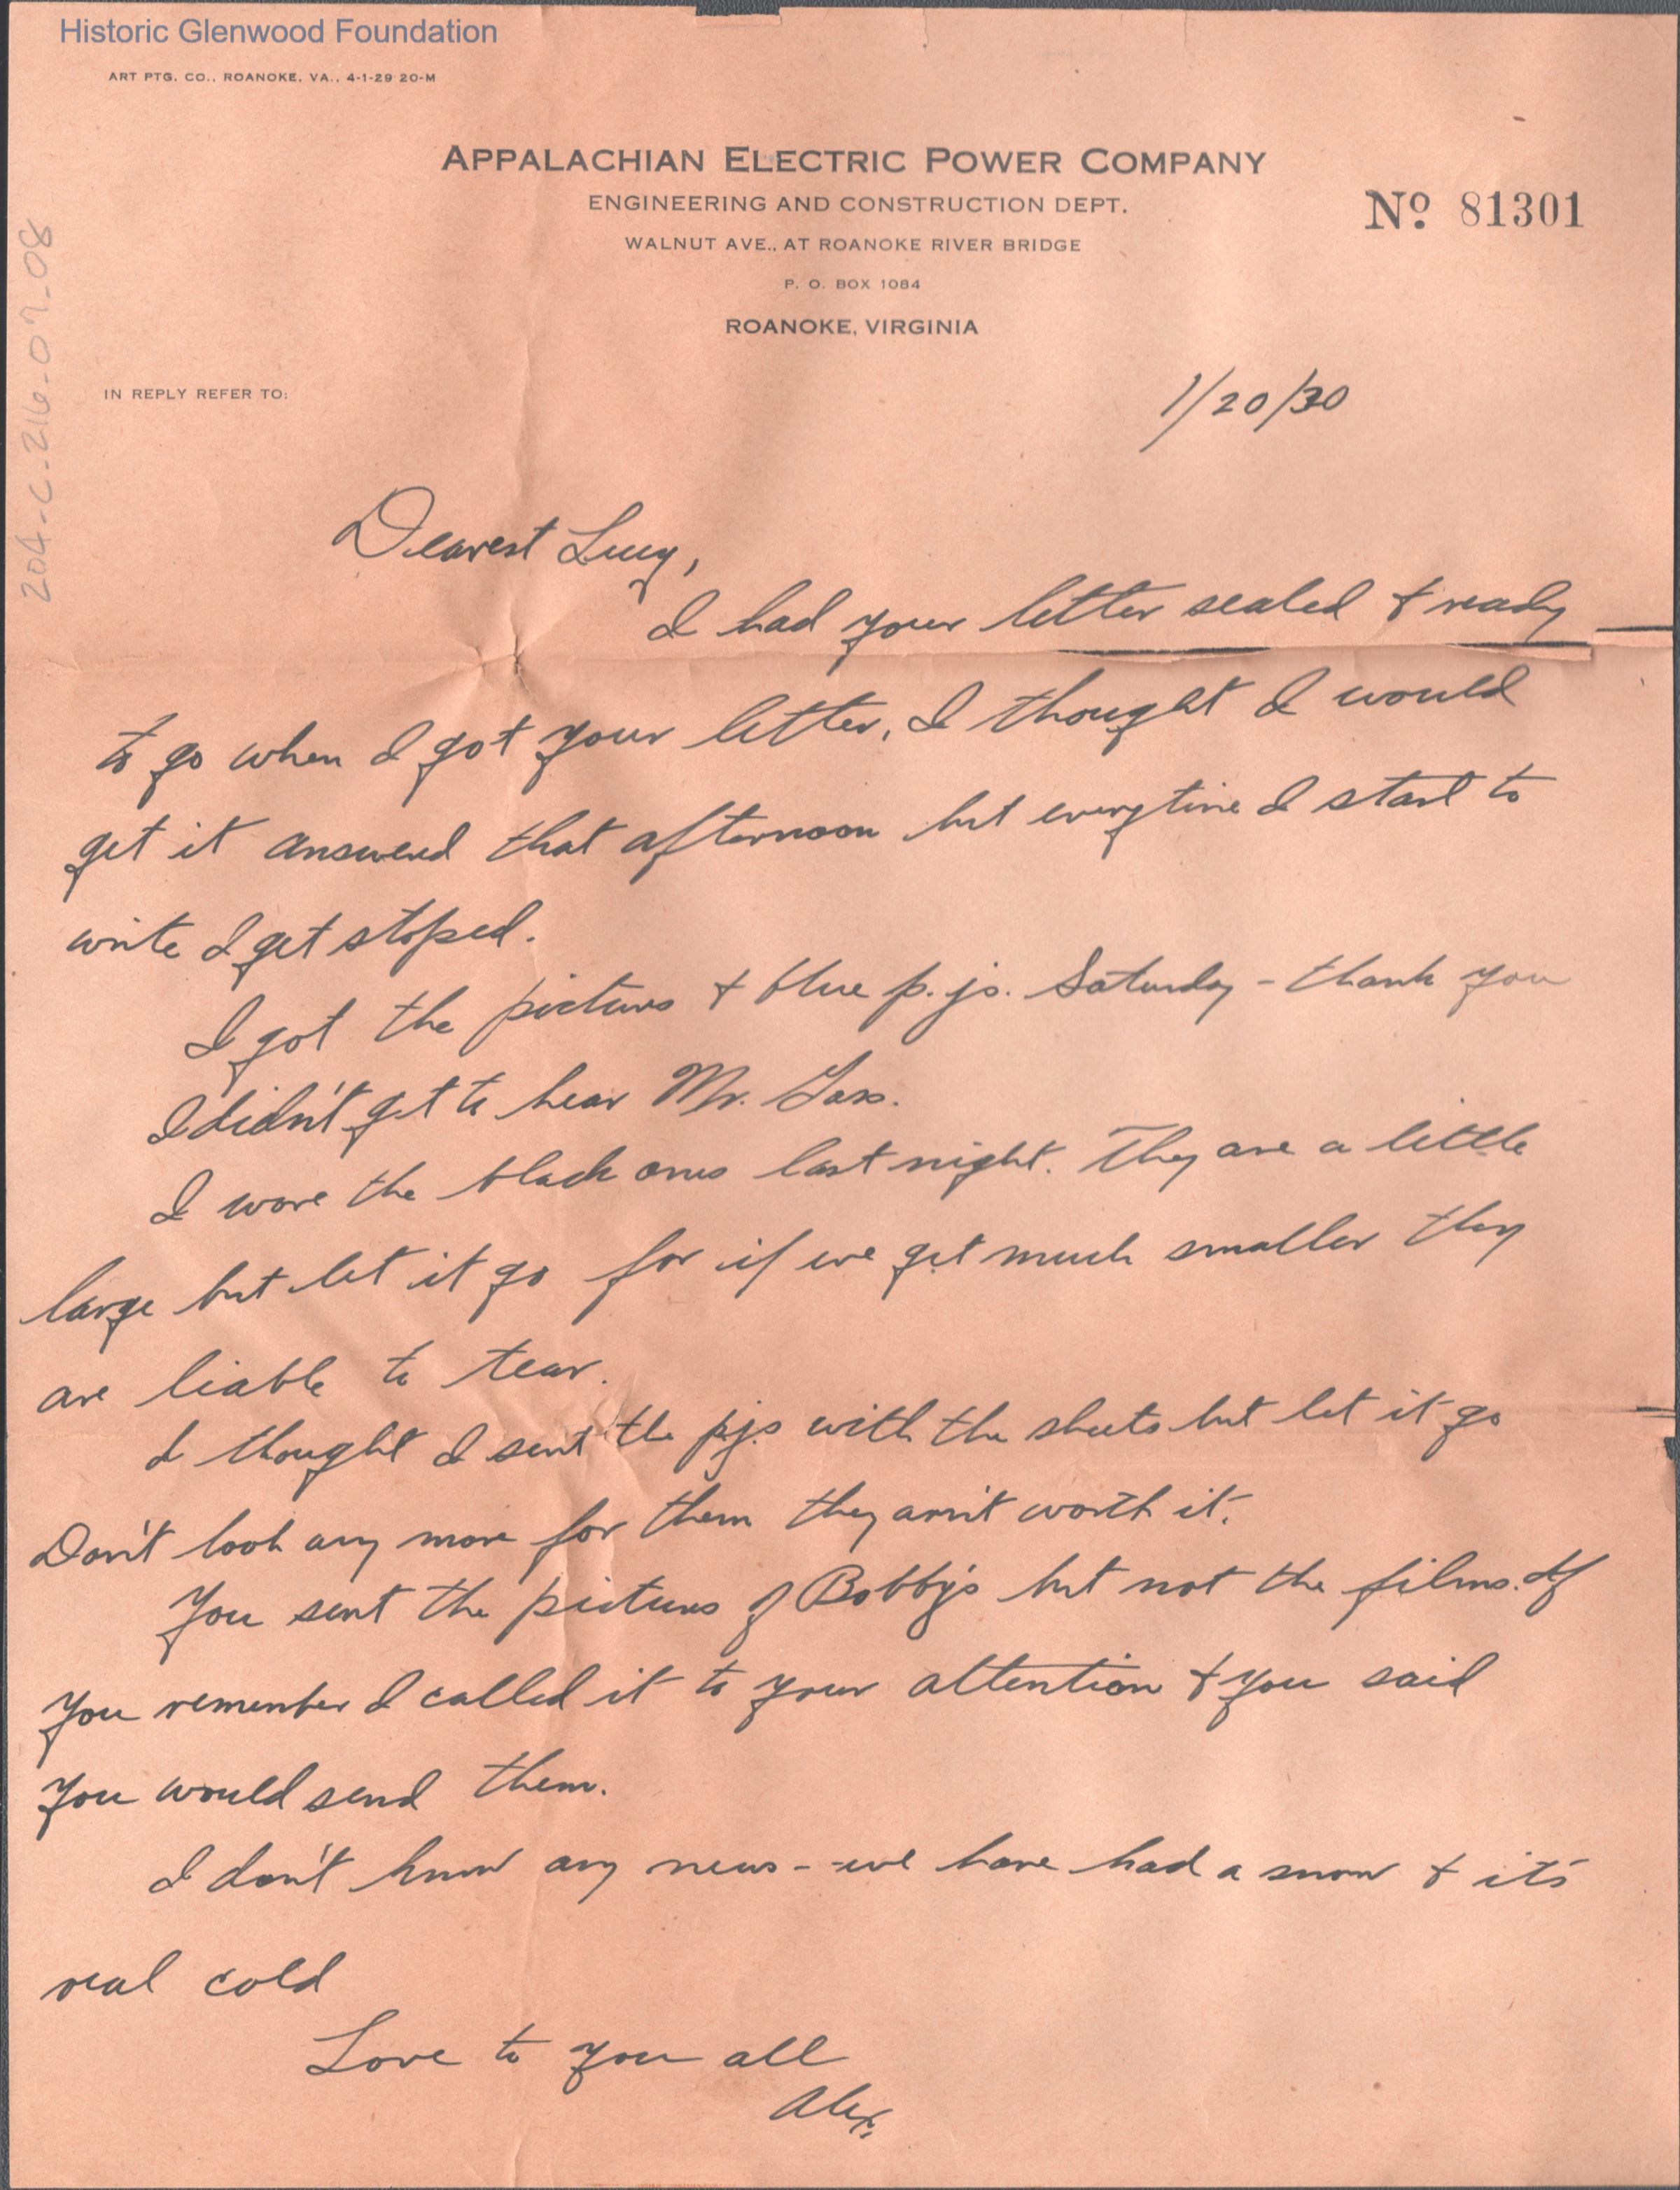 Historic Glenwood Foundation
ART PTG. CO., ROANOKE, VA., 4-1-29 20-M
APPALACHIAN ELECTRIC POWER COMPANY
ENGINEERING AND CONSTRUCTION DEPT.
WALNUT AVE., AT ROANOKE RIVER BRIDGE
P. O. BOX 1084
ROANOKE, VIRGINIA
No. 81301
204-C-216-07-08
IN REPLY REFER TO:
1/20/30
Dearest Lucy,
I had your letter sealed & ready
to go when I got your letter, I thought I would
get it answerd that afternoon but everytime I start to
write I get stoped.
I got the pictures & blue p.js. Saturday - thank you
I didn't get to hear Mr.
I wore the black ones last night. They are a little
large but let it go for if we get much smaller they
are liable to tear.
I thought I sent the p.js with the sheets but let it go
Don't look any more for them they arn't worth it.
You sent the pictures of Bobby's but not the films. If
you remember I called it to your attention & you said
you would send them.
I don't know any news - we have had a snow & it's
real cold
Love to you all
Alex.